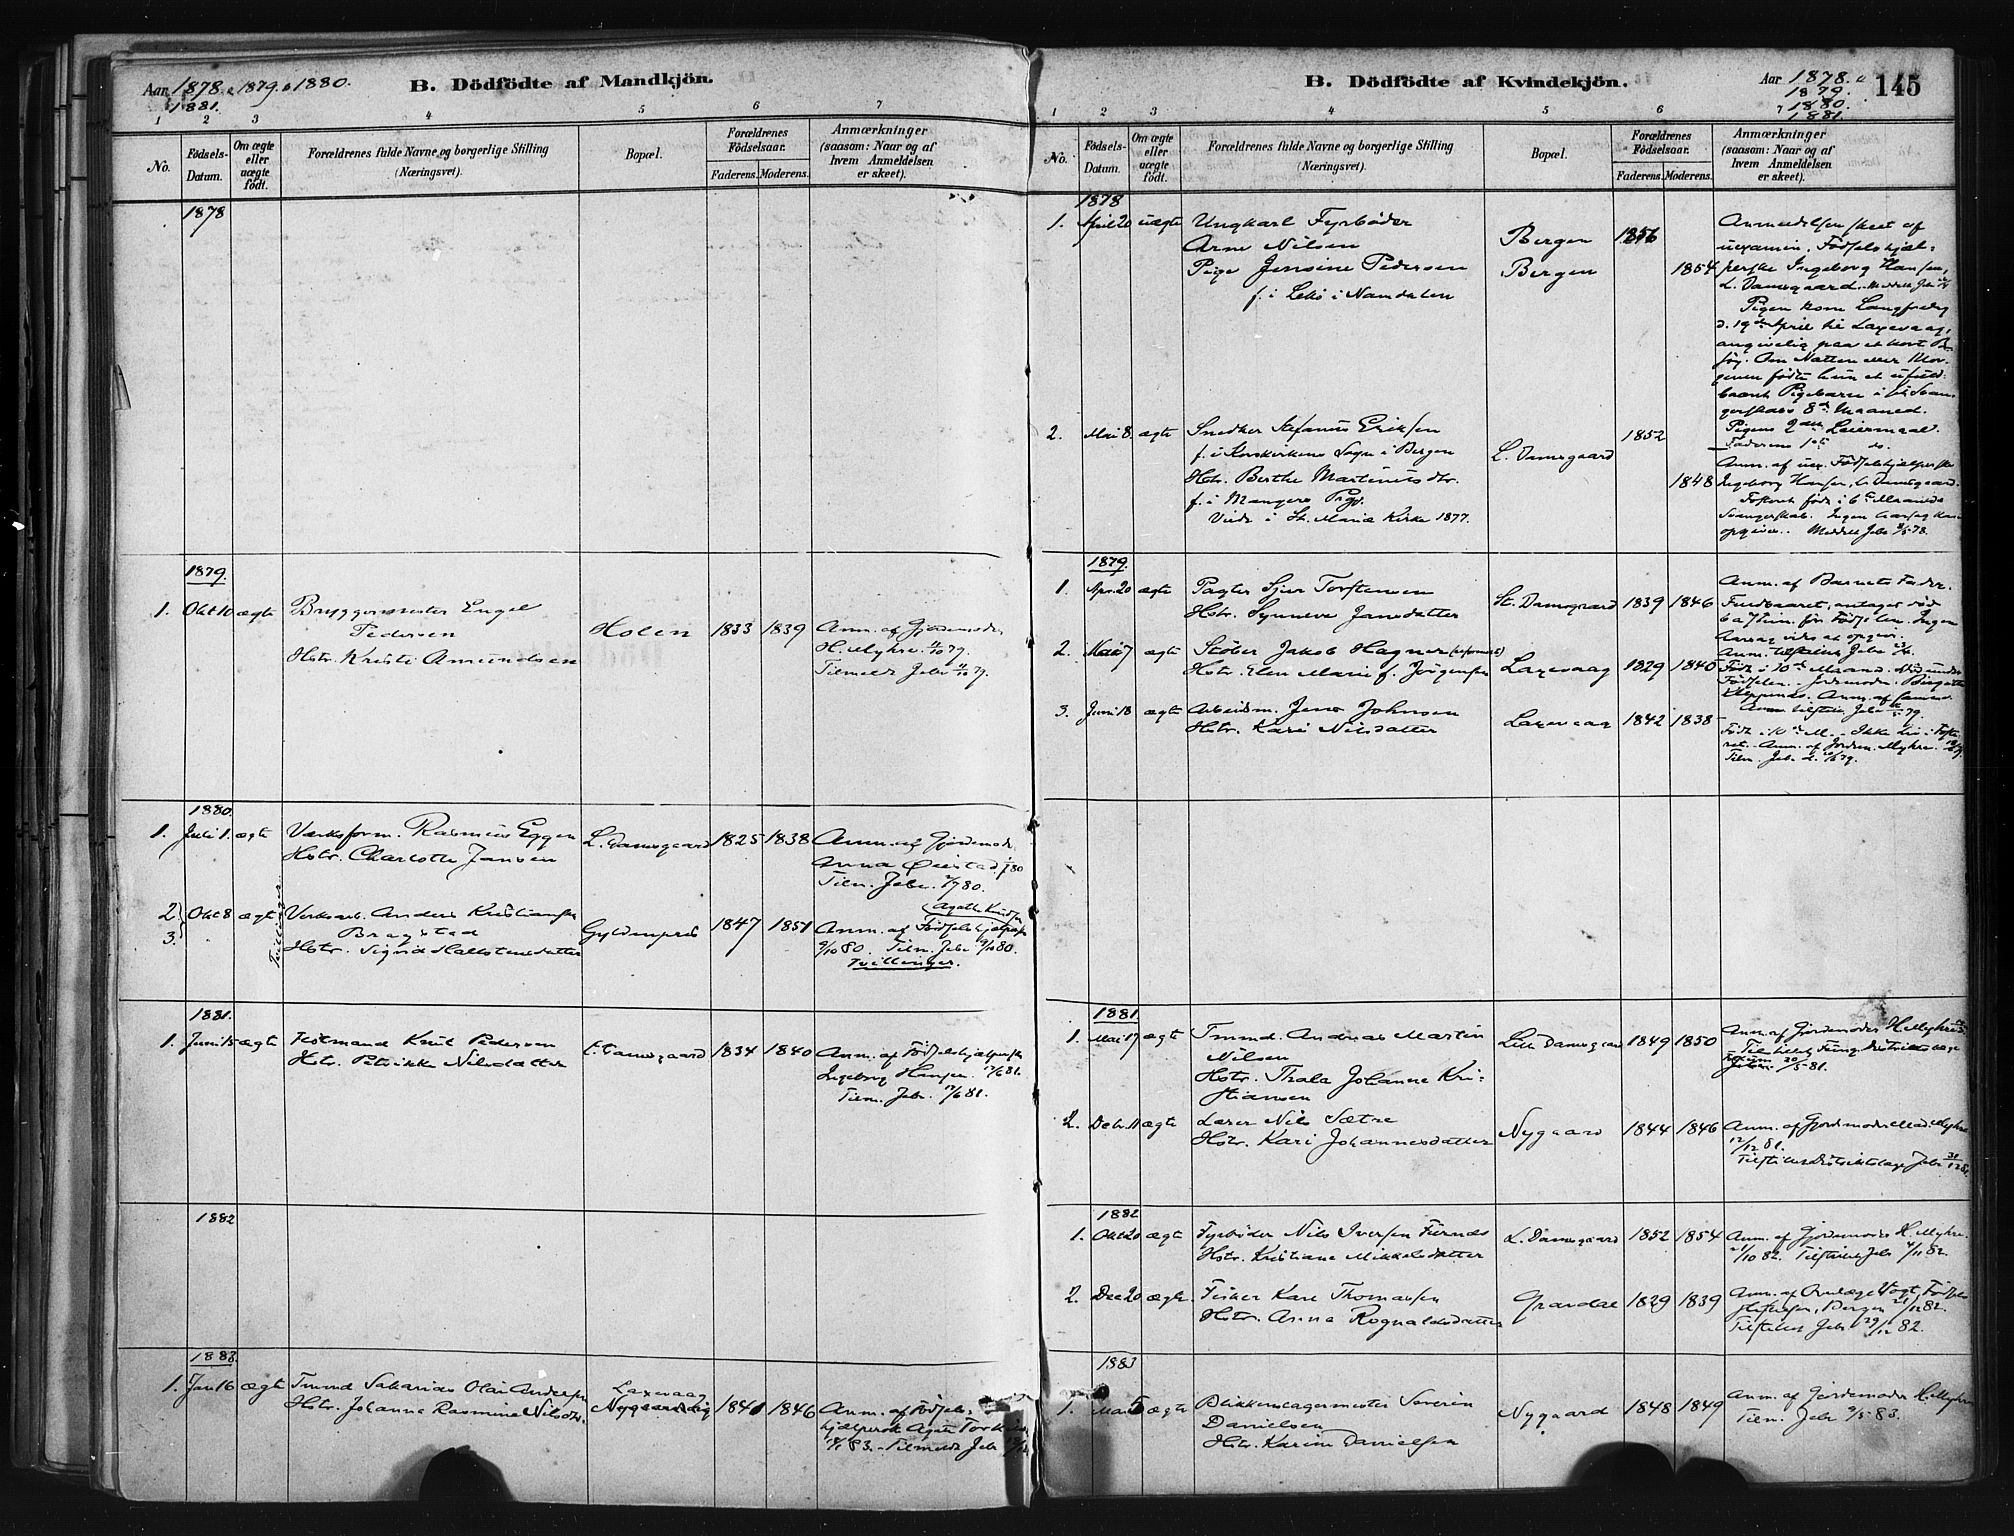 Aar 1878, 1879 & 1880.
1881.
B. Dödfödte af Mandkjön.
1 2 3 4 5 6 7
No.
Födsels-Datum.
Om ægte eller uægte födt.
Forældrenes fulde Navne og borgerlige Stilling
(Næringsvei).
Bopæl.
Forældrenes Födselsaar.
Faderens. Moderens.
Anmærkninger
(saasom: Naar og af
hvem Anmeldelsen
er skeet).
1878
1879.
1. Okt 10 ægte Bryggermester Engel
Pedersen
Hstr. Kristi Amundsen
Holen 1833 1839 Anm. af Gjordemoder
H. Myhre.
Tilmeldt Jebe
1880.
1. Juli 1. ægte Værksform. Rasmus Eggen
Hstr. Charlotte Jansen
L. Damsgaard 1825 1838 Anm. af Gjordemoder
Anna Øiestad
Tilm. Jebe
2. 3. Okt 8 ægte Tvillinger Verksarb. Anders Kristiansen
Bragstad
Hstr. Sigrid Halstensdatter
Gyldenpris 1847 1851 Agathe Knudsen
Anm. af Födselshjælperske
9/10 80. Tilm. Jebe 9/10 80.
Tvillinger.
1881.
1. Juni 15 ægte Knut Pedersen
Hstr. Petrikke Nilsdatter
L. Damsgaard 1834 1840 Anm. af Födselshjælperske
Ingeborg Hansen 17/6 81.
Tilm. Jebe 17/6 81.
1882
1883.
1. Jan 16 ægte Tmmd Sakarias Olai Andersen
Hstr. Johanna Rasmine Nilsdtr.
Laxevaag
1841 1846 Anm. af Födsels-
hjælperske Agate
Tilmeldt Jebe
B. Dödfödte af Kvindekjön.
Aar 1878.
1879.
1880.
1881.
145
1 2 3 4 5 6
No.
Födsels-Datum.
Om ægte eller uægte födt.
Forældrenes fulde Navne og borgerlige Stilling
(Næringsvei).
Bopæl.
Forældrenes Födselsaar.
Faderens. Moderens.
Anmærkninger
(saasom: Naar og af
hvem Anmeldelsen
er skeet).
1878
1. April 20 uægte Ungkarl Fyrböder
Arne Nilsen Bergen 1856
Pige Jensine Pedersen Bergen 1854
f. i Lekö i Namdalen
Anmeldelsen skeet af
uexamin. Födselshjæl-
perske Ingeborg Hansen,
L. Damsgaard. Meddelt Jebe
Pigen kom Langfredag
d. 19de April til Laxevaag,
angivelig paa et kort Be-
søg. Om Natten eller Mor-
genen födte hun et ufuld-
baaret Pigebarn i sit Svan-
gerskabs 8de Maaned.
Pigens 2det Leiermaal.
Faderens 1ste do.
2. Mai 8. ægte Snedker Stefanus Eriksen
f. i Korskirkens Sogn i Bergen
Hstr. Berthe Martinusdtr.
f. i Mangers Pgd.
Viede i St. Mariæ Kirke 1877.
L. Damsgaard 1852 1848
Anm. af uex. Födselshjælperske
Ingeborg Hansen, L. Damsgaard.
Fosteret födt i 6te Maaneds
Svangerskab. Ingen Aarsag kan
opgives. Meddelt Jebe 9/5 78.
1879.
1. Apr. 20 ægte Pagter Sjur Torstensen
Hstr. Synneve Jansdatter
St. Damsgaard 1839 1846
Anm. af Barnets Fader.
Fuldbaaret, antaget död
6 a 7 Tim. för Födselen. Ingen
Aarsag vides at opgive.
2. Mai 7 ægte Stöber Jakob Hagner (reformert)
Hstr. Elen Marie f. Jörgensen
Laxevaag 1829 1840
Födt i 10de Maaned. Död under
Födselen. Jordemoder Birgitte
3. Juni 18 ægte Arbeidsm. Jens Johnsen
Hstr. Kari Nilsdatter
Laxevaag 1842 1838
Födt i 10de M. Ikke Liv i Foste-
ret. Anm. af Jordem. Myhre.
Tilm. Jebe
1881.
1. Mai 17 ægte Tmmd. Andreas Martin
Nilsen
Hstr. Thala Johanne Kri-
stiansen
Lille Damsgaard 1849 1850
Anm. af Gjordemoder H. Myhre
20/5 81.
2. Debr. 11 ægte Nils Sætre
Hstr. Kari Johannesdatter
Nygaard 1844 1846 Anm. af Gjordemoder Mad. Myhre
12/12 81.
Tilstillet Distriktslæge Jebe
1882
1. Okt 20 ægte Fyrböder Nils Iversen
Hstr. Kristiane Mikkelsdatter
L. Damsgaard 1852 1854 Anm. af Gjordemoder H. Myhre.
21/10 82. Tilstillet Jebe 4/11 82.
2. Dec 20 ægte Fisker Kare Thomassen
Hstr. Anna Rognaldsdatter
Gravdal 1829 1839 Anm. af Overlæge Vogt, Födsels-
stiftelsen, Bergen 21/12 82.
Tilstillet Jebe 29/12 82.
1883
1. Mai 5 ægte Blikkenslagermester Severin
Danielsen
Hstr. Karine Danielsen
Nygaard 1848 1849 Anm. af Gjordemoder H. Myhre
Tilm. Jebe 9/5 83.